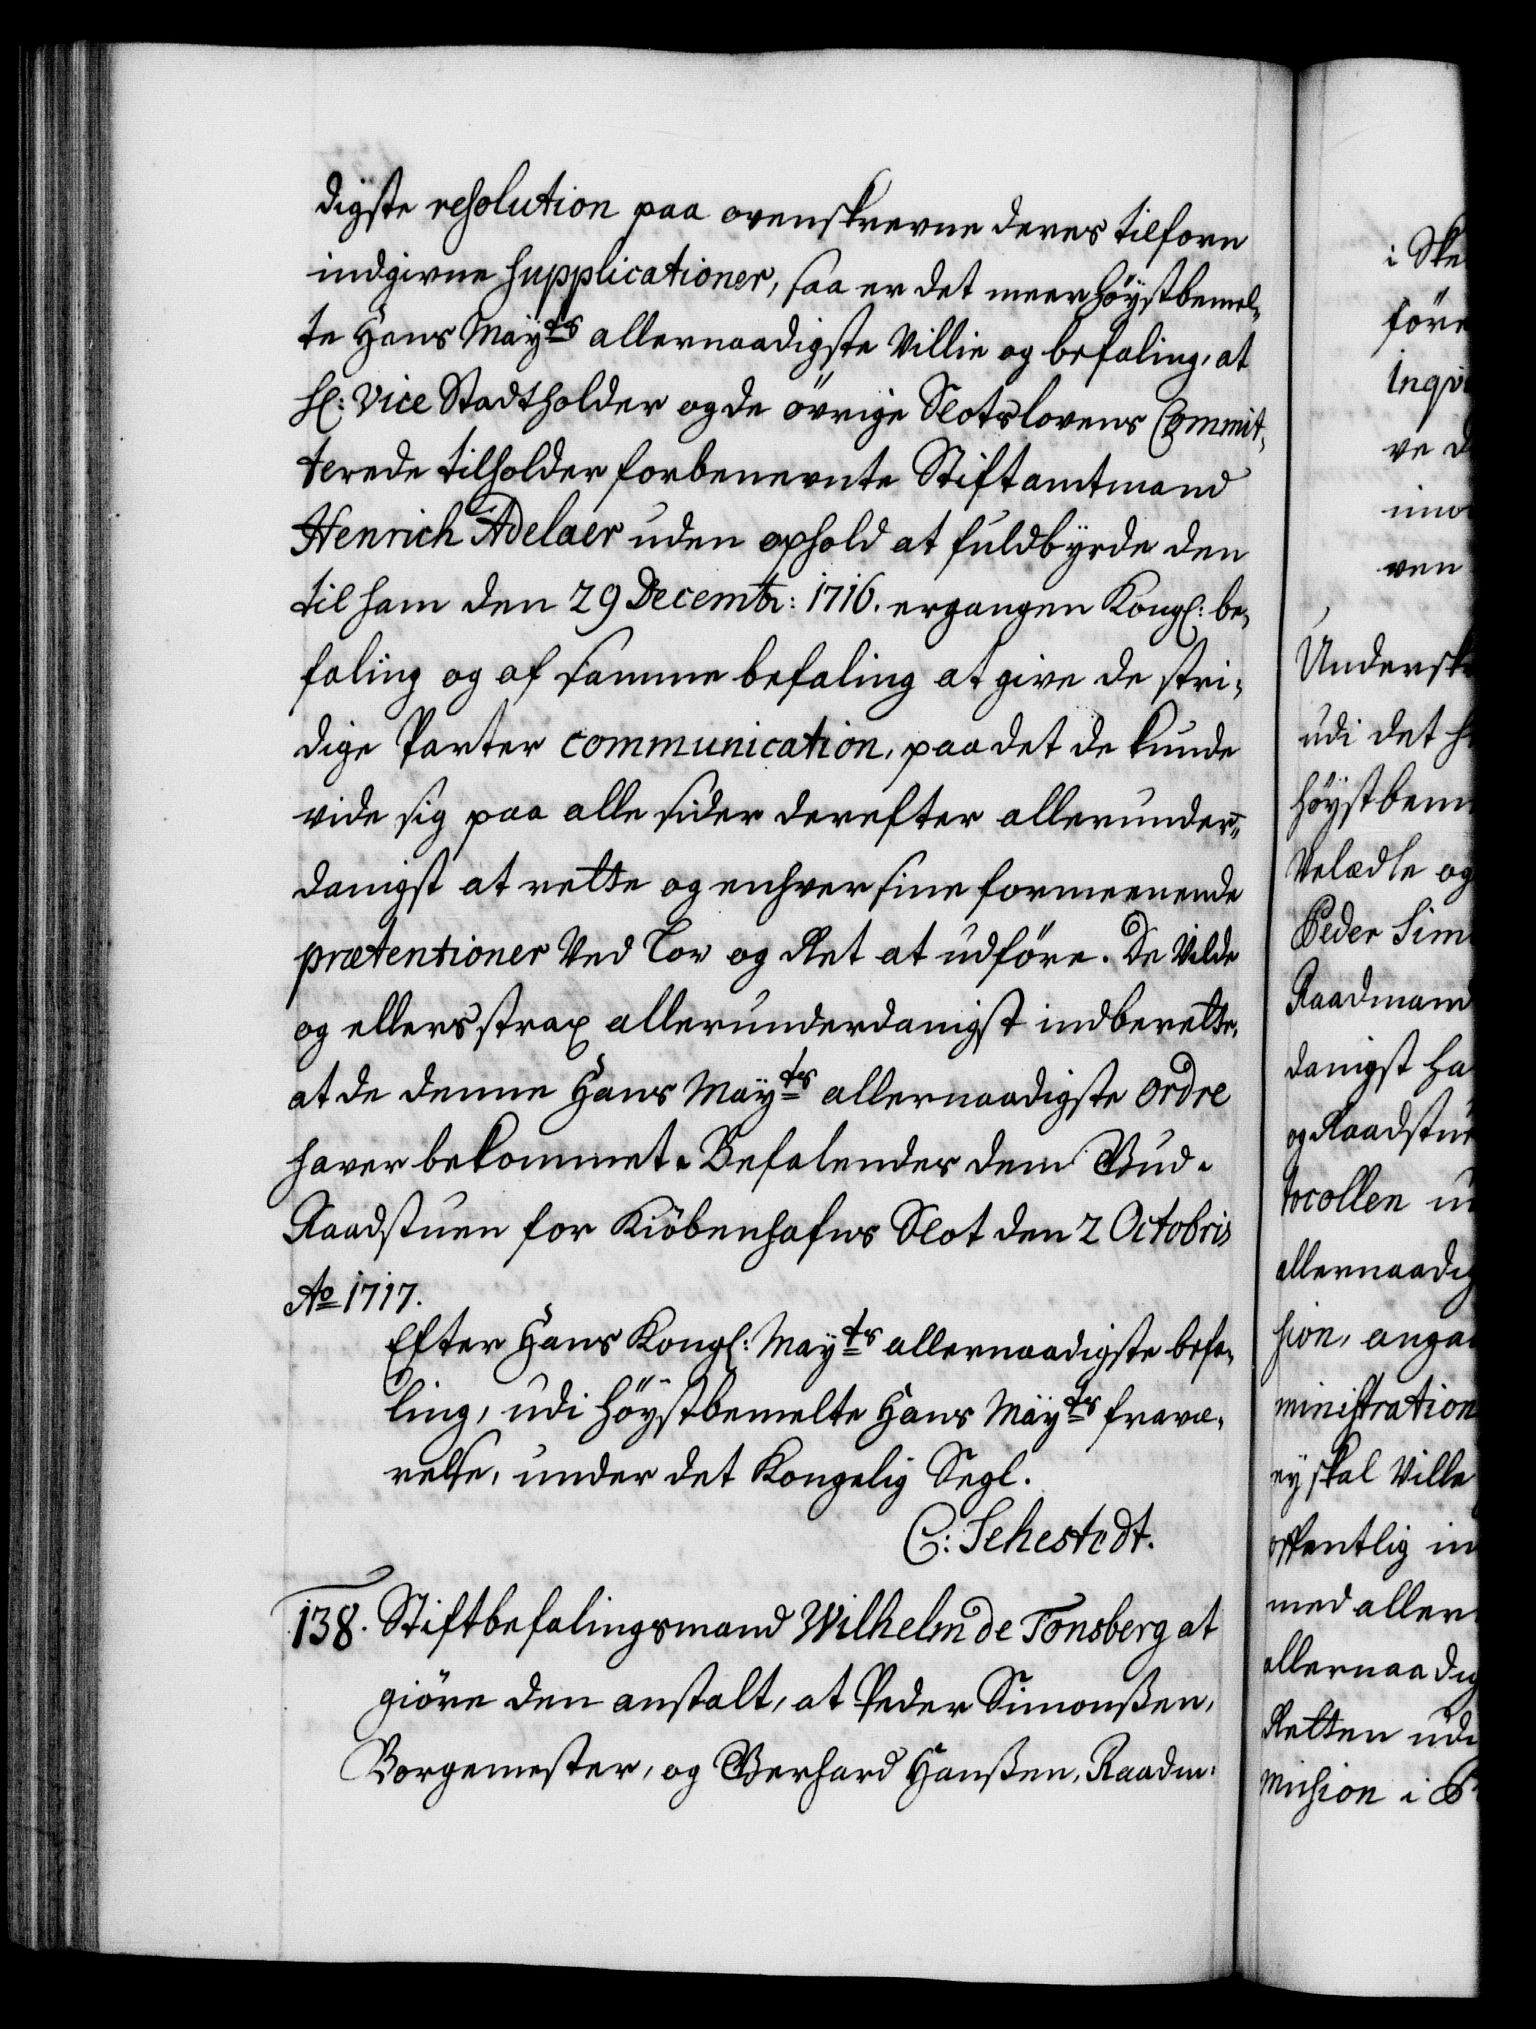 digste resolution paa ovenskrevne deres tilforn
indgivne supplicationer, saa er det meer höÿstbemel-
te Hans Maÿts allernaadigste Villie og befaling, at
Hl: Vice Stadtholder og de övrige Slotslovens Commit-
terede tilholder forbenevnte Stiftamtmand
Henrich Adelaer uden ophold at fuldbÿrde den
til ham den 29 Decembr: 1716. ergangen Kongl: be-
faling og af samme befaling at give de stri-
dige Parter communication, paa det de kunde
vide sig paa alle sider derefter allerunder-
danigst at rette og enhver sine formeenende
prætentioner Ved Lov og Ret at udföre. De Vilde
og ellers strax allerunderdanigst indberette,
at de denne Hans Maÿts allernaadigste ordre
haver bekommet. Befalendes dem Gud.
Raadstuen for Kiöbenhafns Slot den 2 Octobris
Ao 1717.
Efter Hans Kongl: Maÿts allernaadigste befa-
ling, udi höÿstbemelte Hans Maÿts fravæ-
relse, under det Kongelig Segl.
C: Sehestedt.
138. Stiftbefalingsmand Wilhelm de Tonsberg at
giöre den anstalt, at Peder Simonßen,
Borgemester, og Gerhard Hanßen, Raadm:
i Ske
före
Inqvi
ve d
imo
ven
Undersk
udi det h
höÿstbem
Velædle og
Peder Sim
Raadmand
danigst ha
og Raadstue
tocollen u
allernaadig
sion, anga
ministration
eÿ skal Ville
offentlig in
med aller
allernaadig
Retten udi
mission i